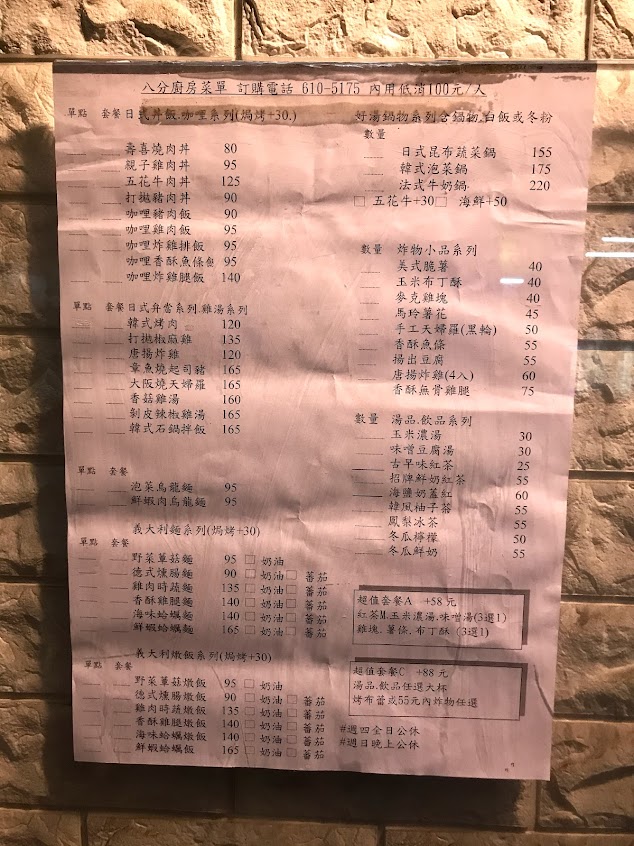 八分廚房菜單 訂購電話 610-5175 內用低消100元/人
單點 套餐 日式丼飯.咖哩系列(焗烤+30.)
壽喜燒肉丼 80
親子雞肉丼 95
五花牛肉丼 125
打拋豬肉丼 90
咖哩豬肉飯 90
咖哩雞肉飯 95
咖哩炸雞排飯 95
咖哩香酥魚條飯 95
咖哩炸雞腿飯 140
單點 套餐 日式弁當系列.雞湯系列
韓式烤肉 120
打拋椒麻雞 135
唐揚炸雞 120
章魚燒起司豬 165
大阪燒天婦羅 165
香菇雞湯 160
剝皮辣椒雞湯 165
韓式石鍋拌飯 165
單點 套餐
泡菜烏龍麵 95
鮮蝦肉烏龍麵 95
義大利麵系列(焗烤+30)
單點 套餐
野菜蕈菇麵 95 □ 奶油
德式燻腸麵 90 □ 奶油 □ 蕃茄
雞肉時蔬麵 135 □ 奶油 □ 蕃茄
香酥雞腿麵 140 □ 奶油 □ 蕃茄
海味蛤蠣麵 140 □ 奶油 □ 蕃茄
鮮蝦蛤蠣麵 165 □ 奶油 □ 蕃茄
義大利燉飯系列(焗烤+30)
單點 套餐
野菜蕈菇燉飯 95 □ 奶油
德式燻腸燉飯 90 □ 奶油 □ 蕃茄
雞肉時蔬燉飯 135 □ 奶油 □ 蕃茄
香酥雞腿燉飯 140 □ 奶油 □ 蕃茄
海味蛤蠣燉飯 140 □ 奶油 □ 蕃茄
鮮蝦蛤蠣飯 165 □ 奶油 □ 蕃茄
好湯鍋物系列含鍋物.白飯或冬粉
數量
日式昆布蔬菜鍋 155
韓式泡菜鍋 175
法式牛奶鍋 220
□ 五花牛+30 □ 海鮮+50
數量 炸物小品系列
美式脆薯 40
玉米布丁酥 40
麥克雞塊 40
馬玲薯花 45
手工天婦羅(黑輪) 50
香酥魚條 55
揚出豆腐 55
唐揚炸雞(4入) 60
香酥無骨雞腿 75
數量 湯品.飲品系列
玉米濃湯 30
味噌豆腐湯 30
古早味紅茶 25
招牌鮮奶紅茶 55
海鹽奶蓋紅 60
韓風柚子茶 55
鳳梨冰茶 55
冬瓜檸檬 50
冬瓜鮮奶 55
超值套餐A +58元
紅茶M.玉米濃湯.味噌湯(3選1)
雞塊.薯條.布丁酥 (3選1)
超值套餐C +88元
湯品.飲品任選大杯
烤布蕾或55元內炸物任選
#週四全日公休
#週日晚上公休